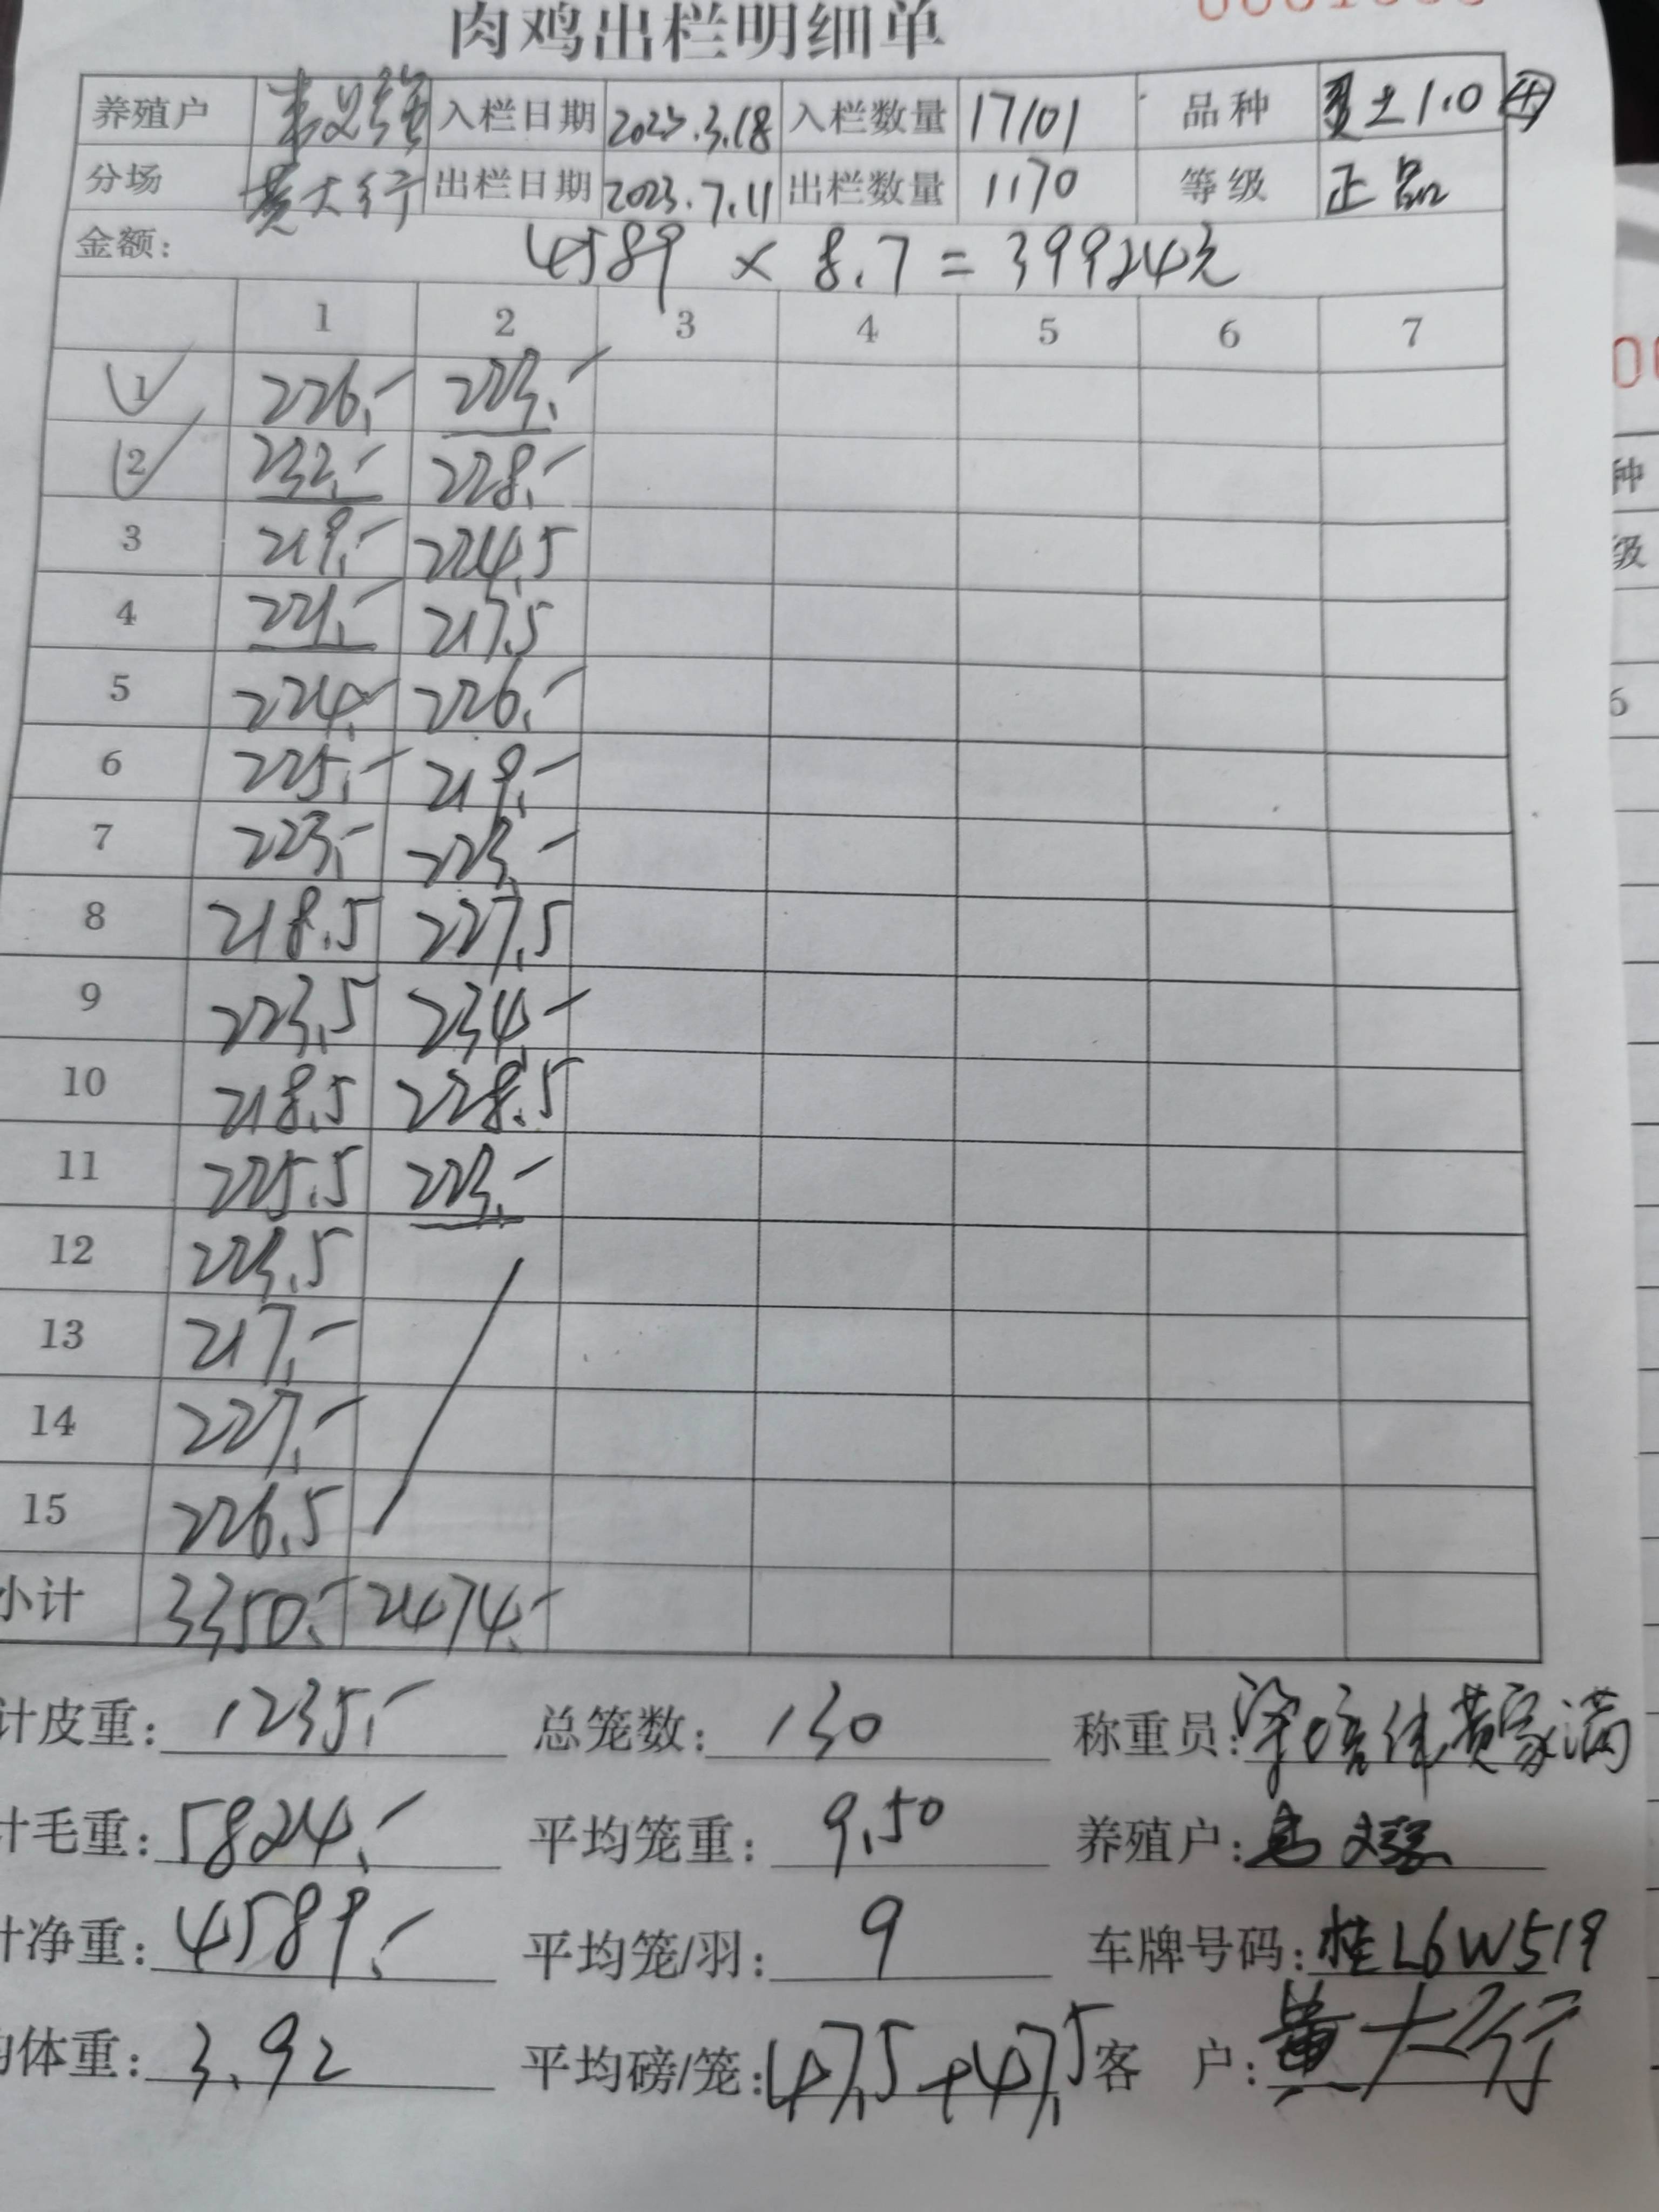 肉鸡出栏明细单
养殖户 入栏日期 2023.3.18 入栏数量 17101 品种 土1.0
分场 黄大行 出栏日期 2023.7.11 出栏数量 1170 等级 正品
金额: 4589 × 8.7 = 39924元
1 2 3 4 5 6 7
1 226.- 223.-
2 232.- 228.-
3 219.- 224.5
4 221.- 217.5
5 224.- 226.-
6 225.- 219.-
7 223.- 223.-
8 218.5 227.5
9 223.5 234.-
10 218.5 228.5
11 225.5 223.-
12 223.5
13 217.-
14 227.-
15 226.5
小计 3350.- 2474.-
计皮重: 1235.- 总笼数: 130 称重员: 黄家满
计毛重: 5824.- 平均笼重: 9.50 养殖户:
计净重: 4589.- 平均笼/羽: 9 车牌号码: 桂L6W519
均体重: 3.92 平均磅/笼: 47.5+47.5 客 户: 黄大行
种
级